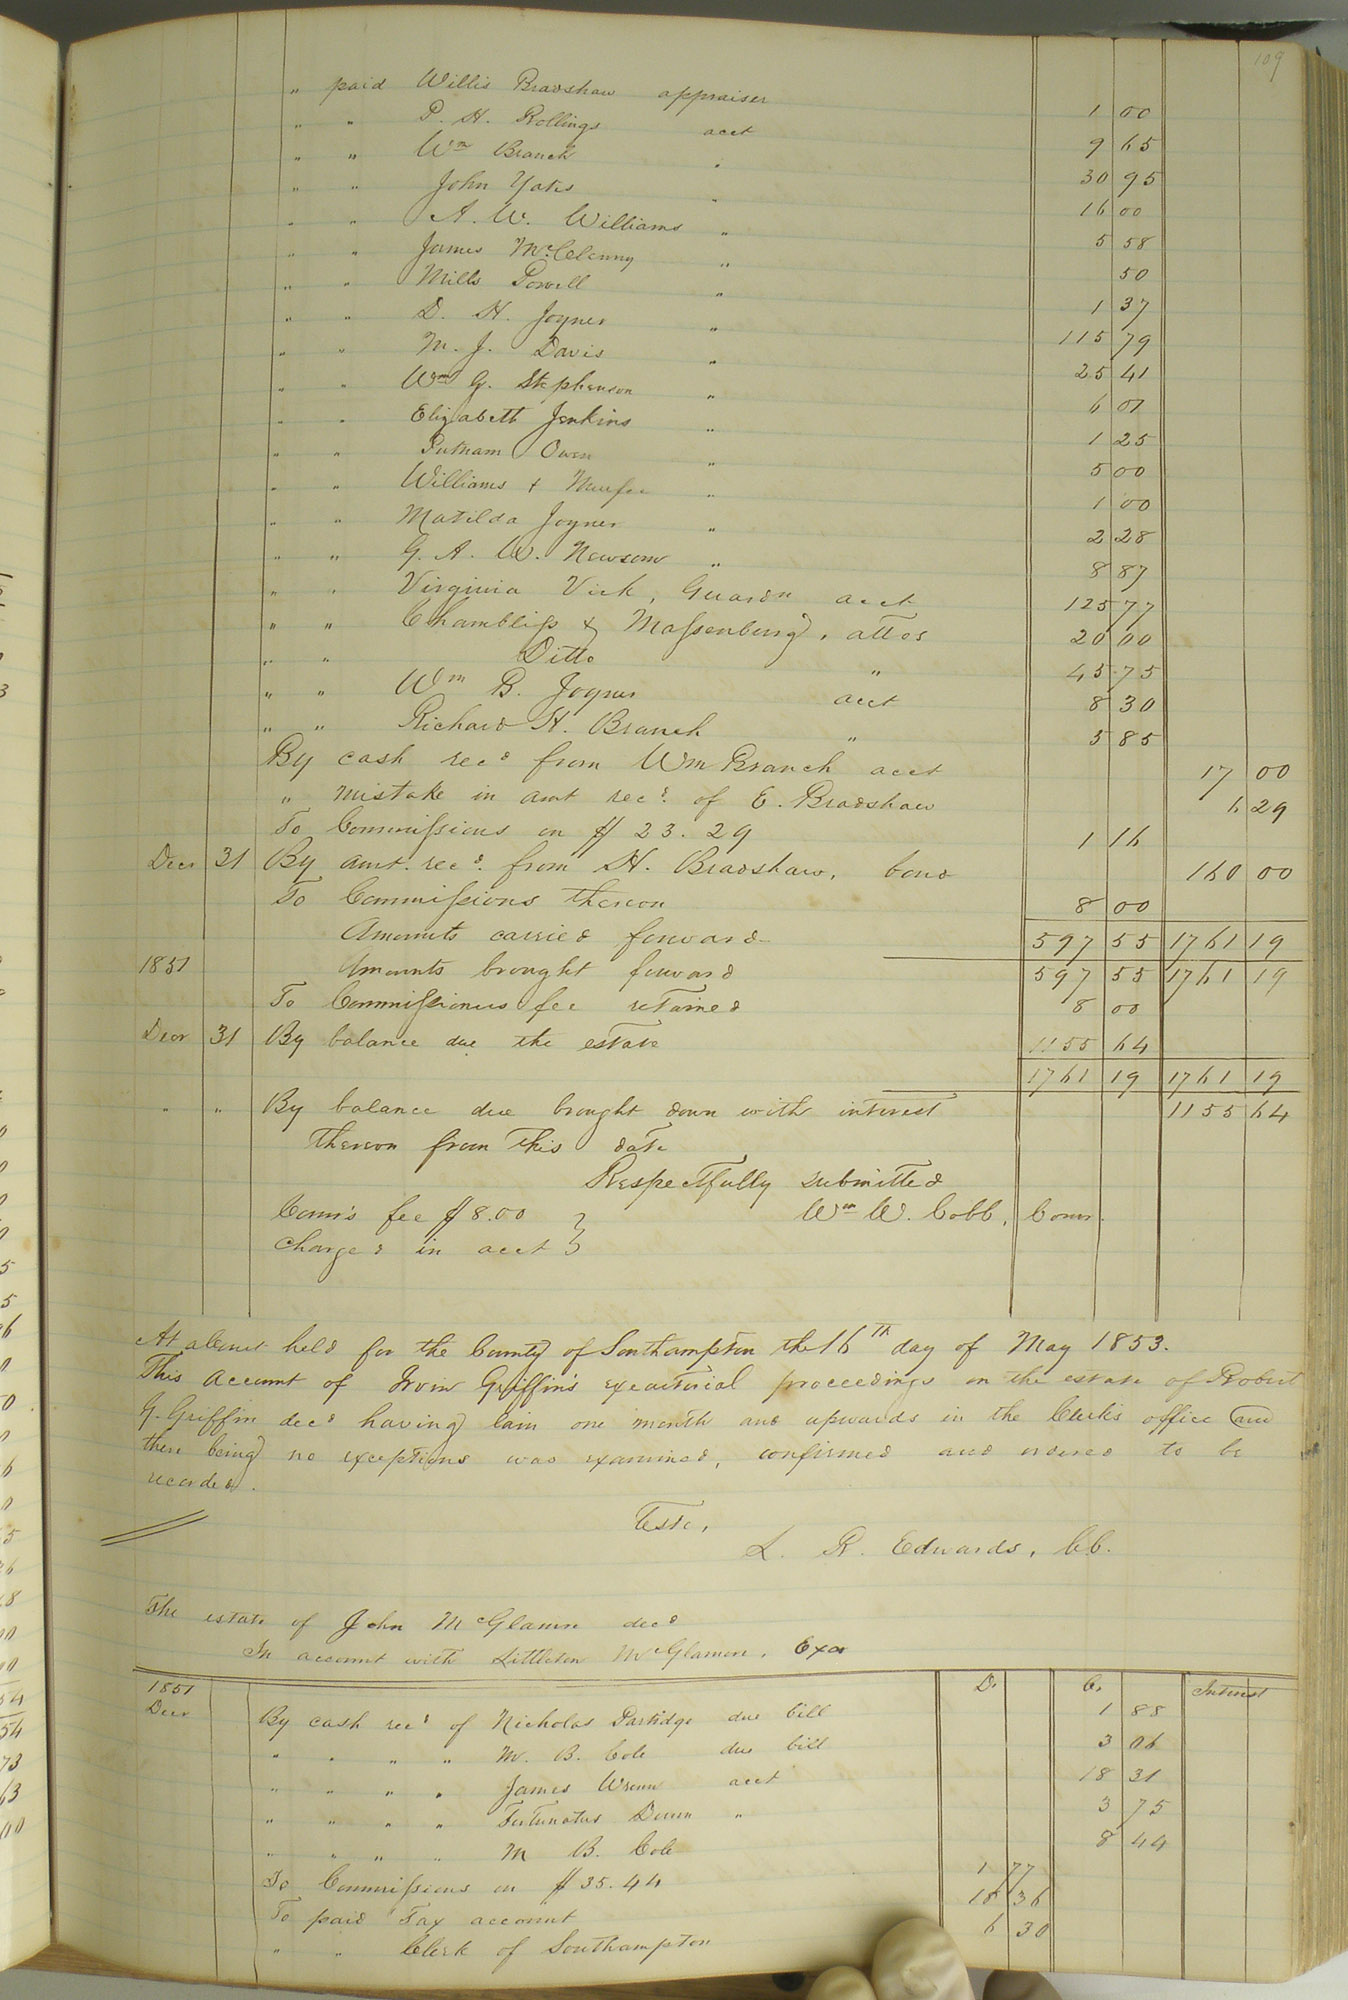 109
" paid Willis Bradshaw appraiser 1 00
" " P. H. Rollings acct 9 65
" " Wm Branch " 30 95
" " John Yates " 16 00
" " A. W. Williams " 5 58
" " James McClenny " 50
" " Mills Powell " 1 37
" " D. H. Joyner " 115 79
" " M. J. Davis " 25 41
" " Wm G. Stephenson " 6 07
" " Elizabeth Jenkins " 1 25
" " Putnam Owen " 5 00
" " Williams & " 1 00
" " Matilda Joyner " 2 28
" " G. A. W. Newsom " 8 87
" " Virginia Vick, Guardn acct 125 77
" " Chambliss & Massenburg, attos 20 00
" " Ditto " 45 75
" " Wm B. Joyner acct 8 30
" " Richard H. Branch " 5 85
By cash recd from Wm Branch acct 17 00
" mistake in amt recd. of E. Bradshaw 6 29
To Commissions on $23.29 1 16
Decr 31 By amt. recd. from H. Bradshaw, bond 160 00
To Commissions thereon 8 00
Amounts carried forward 597 55 1761 19
1851 Amounts brought forward 597 55 1761 19
To Commissioners fee retained 8 00
Decr 31 By balance due the estate 1155 64
1761 19 1761 19
" " By balance due brought down with interest 1155 64
thereon from this date
Respectfully submitted
Comr's fee $8.00 } Wm W. Cobb, Comr.
charged in acct }
At a Court held for the County of Southampton the 16th day of May 1853.
This account of Irvin Griffin's executorial proceedings on the estate of Robert
G. Griffin decd having lain one month and upwards in the Clerks office and
there being no exceptions was examined, confirmed and ordered to be
recorded.
Teste,
L. R. Edwards, CC.
The estate of John McGlamn decd
In account with Littleton McGlamon, Exor
1851 Dr. Cr. Interest
Decr By cash recd of Nicholas Partidge due bill 1 88
" " " " M. B. Cole due bill 3 06
" " " " James Wrenn acct 18 31
" " " " Fortunatus Dunn " 3 75
" " " " M B. Cole 8 44
To Commissions on $35.44 1 77
To paid Tax account 18 36
" " Clerk of Southampton 6 30